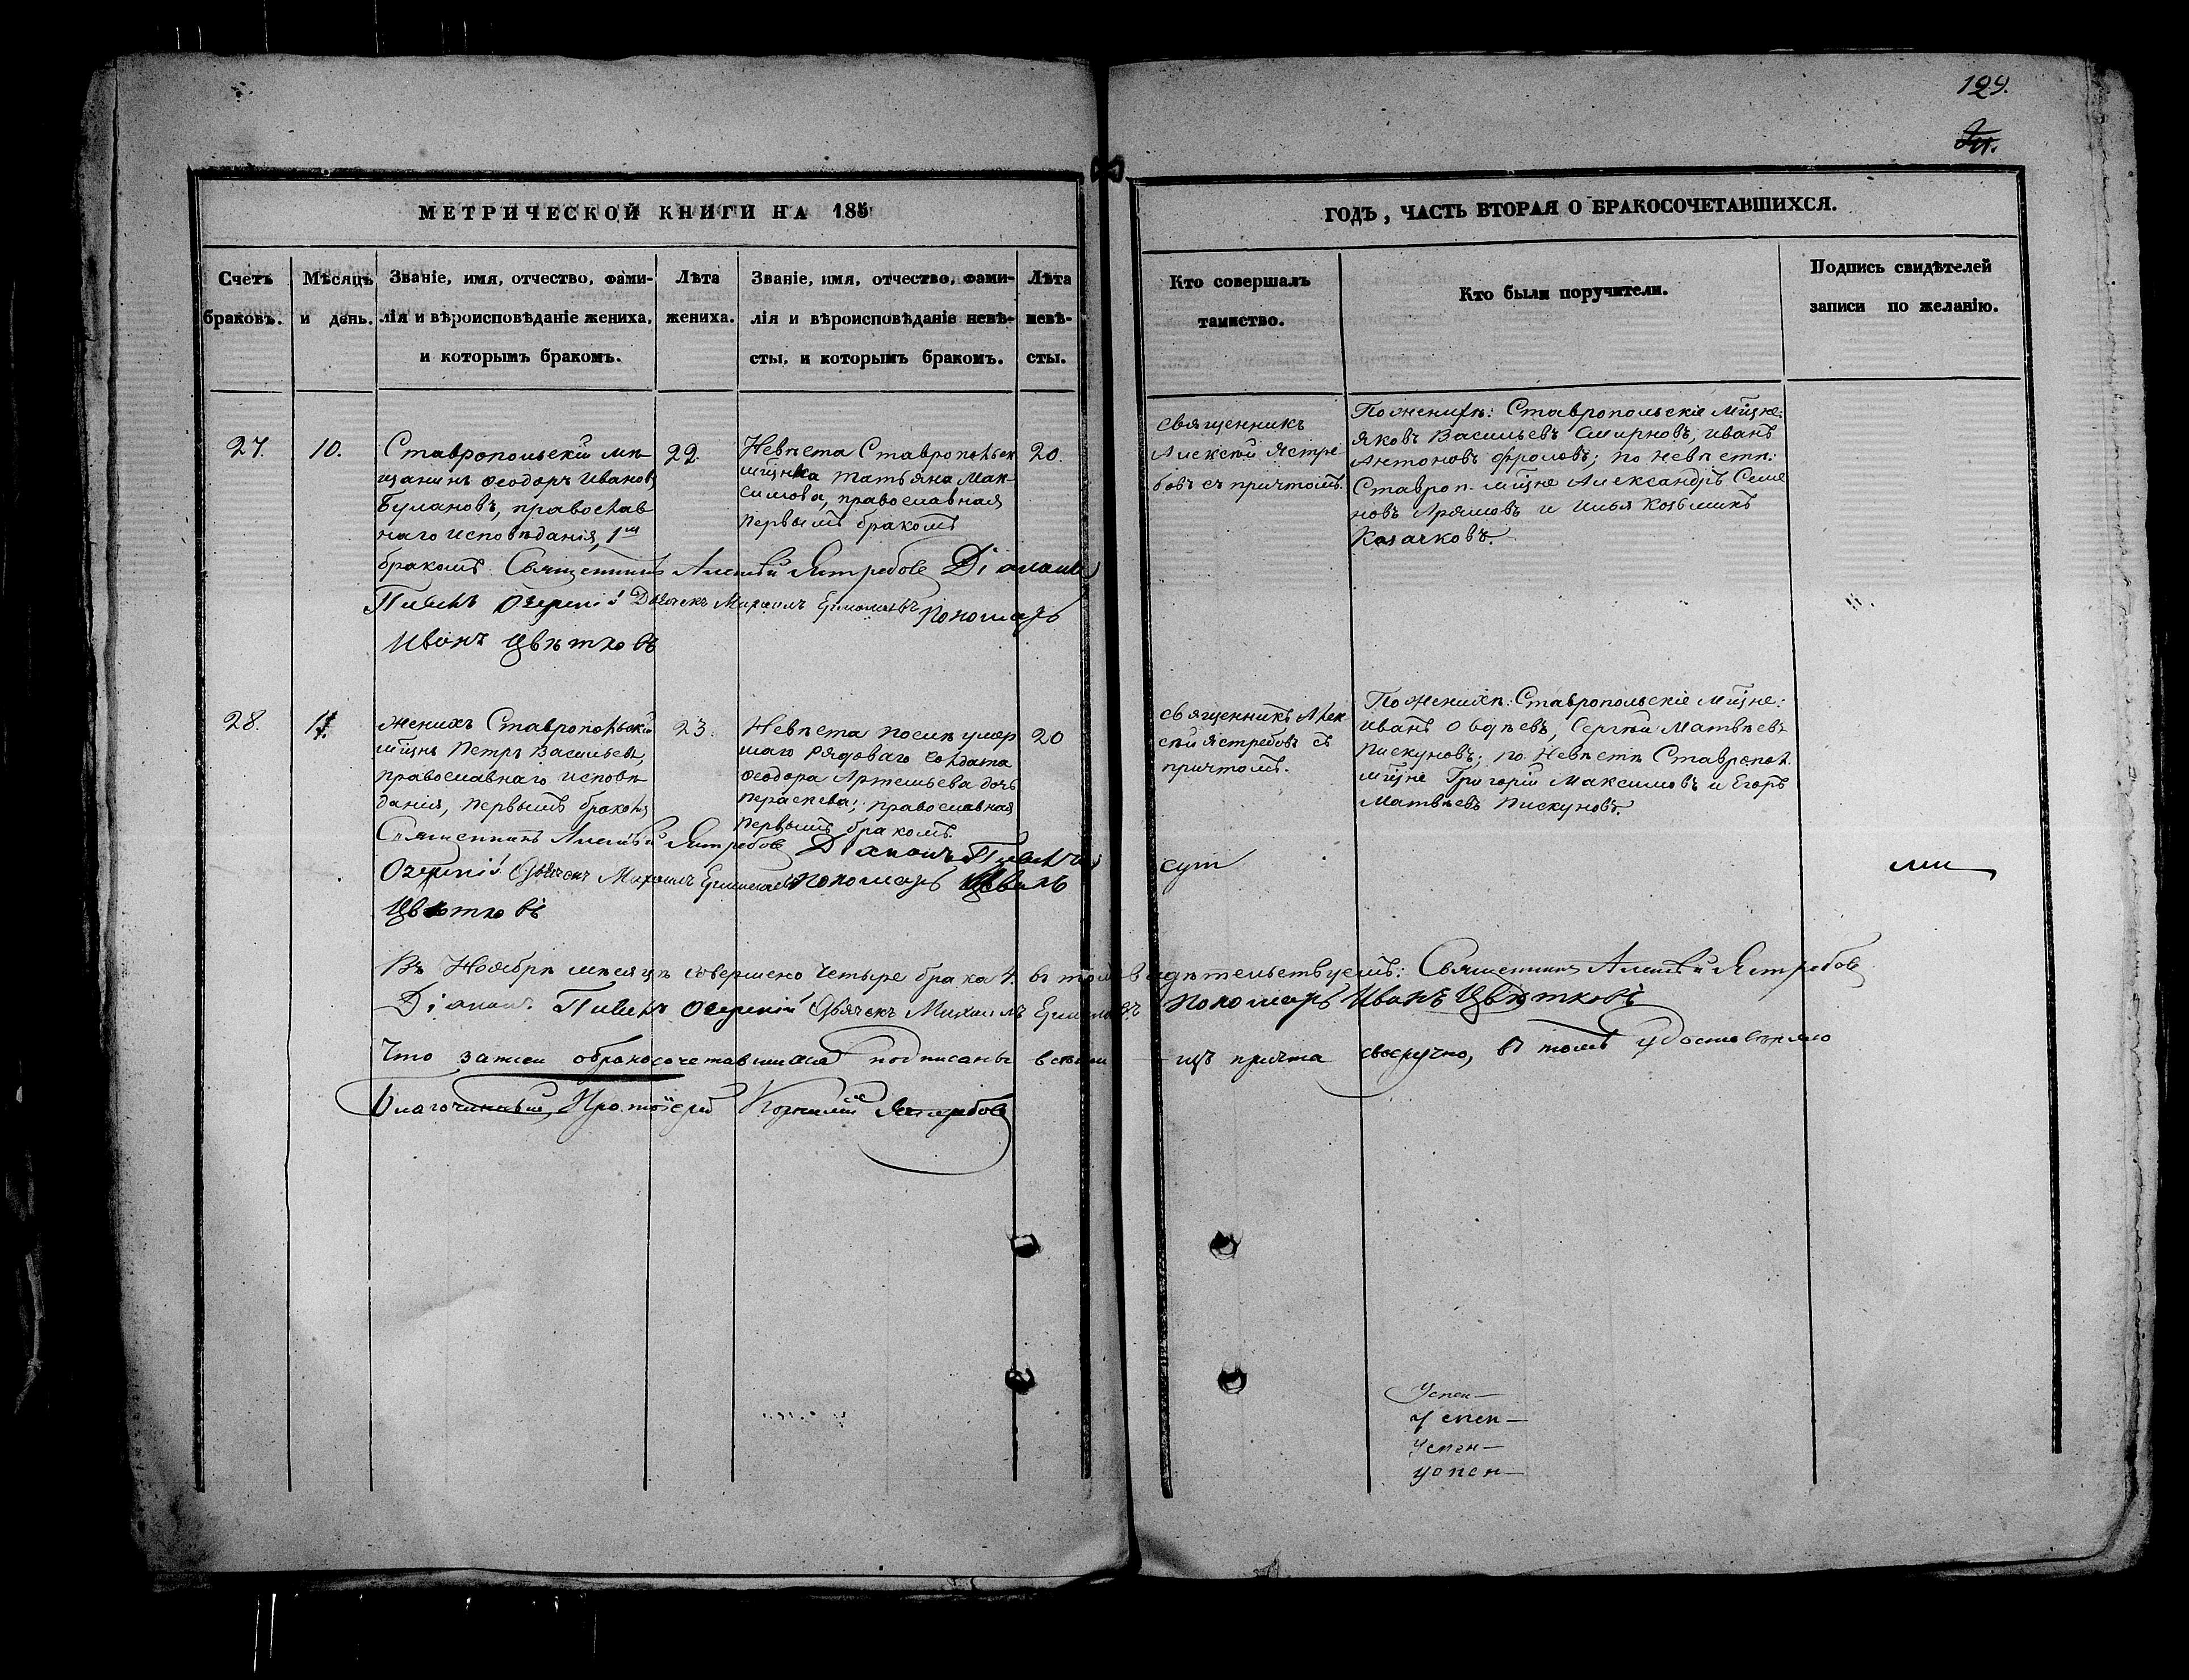 129.
МЕТРИЧЕСКОЙ КНИГИ НА 185
ГОДЪ, ЧАСТЬ ВТОРАЯ О БРАКОСОЧЕТАВШИХСЯ.
Счетъ браковъ.
Мѣсяцъ и день.
Званіе, имя, отчество, фами-
лія и вѣроисповѣданіе жениха,
и которымъ бракомъ.
Лѣта жениха.
Званіе, имя, отчество, фами-
лія и вѣроисповѣданіе невѣ-
сты, и которымъ бракомъ.
Лѣта невѣ-
сты.
Кто совершалъ
таинство.
Кто были поручители.
Подпись свидѣтелей
записи по желанію.
27.
10.
Ставропольскій мѣ
щанинъ Ѳеодоръ Иванов
Булановъ, православ
наго исповѣданія, 1м
бракомъ
22.
Невѣста Ставропольск
мщнка Татьяна Мак-
симова, православная
первымъ бракомъ
20.
священникъ
Алексѣй Ястре
бовъ съ причтомъ.
По женихѣ: Ставропольскіе мщне:
Яковъ Васильевъ Смирновъ, Иванъ
Антоновъ Фроловъ; по невѣстѣ:
Ставроп. мщне Александръ Семе
новъ и Илья Козьминъ
Казачковъ.
Священникъ Алексѣй Ястребовъ Діаконъ
Озерскій Дьячекъ Михаилъ Ермолаевъ Пономарь
Иванъ Цвѣтковъ
28.
Женихъ Ставропольскій
мщнъ Петръ Васильевъ,
православнаго исповѣ
данія, первымъ бракомъ
23.
Невѣста послѣ умер
шаго рядоваго солдата
Ѳеодора Артемьева дочь
Параскева; православная
первымъ бракомъ.
20
священникъ Алек
сѣй Ястребовъ съ
причтомъ.
По женихѣ: Ставропольскіе мщне:
Иванъ Сергѣй Матвѣевъ
Пискуновъ; по невѣстѣ Ставропол.
мщне Григорій Максимовъ и Егоръ
Матвѣевъ Пискуновъ.
Священникъ Алексѣй Ястребовъ Діаконъ
Озерскій Дьячекъ Михаилъ Ермолаевъ Пономарь Иванъ
Цвѣтковъ
Въ Ноябрѣ мѣсяцѣ совершено четыре брака 4. въ томъ свидѣтельствуемъ: Священникъ Алексѣй Ястребовъ
Діаконъ Озерскій Дьячекъ Михаилъ Ермолаевъ Пономарь Иванъ Цвѣтковъ
Что записи о бракосочетавшихся подписаны причта своеручно, въ томъ удостовѣряю
Благочинный, Протоіерей Ястребовъ
Успен—
Успен—
Успен—
Успен—